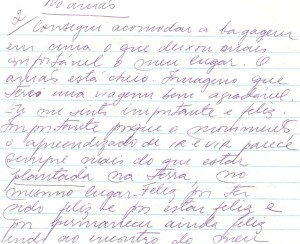 No ônibus
2/ Consegui acomodar a bagagem
em cima o que deixou mais
confortável o meu lugar. O
ônibus está cheio. Imagino que
será uma viagem bem agradável.
Eu me sinto importante e feliz.
Importante porque o movimento
o aprendizado de ir e vir parece
sempre mais do que estar
plantada na terra, no
mesmo lugar. Feliz por ter
sido feliz e por estar feliz e
por permanecer ainda feliz
indo ao encontro do meu